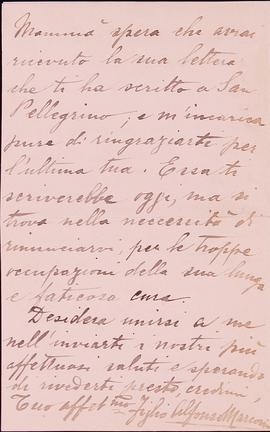 Mammà spera che avrai
ricevuto la sua lettera
che ti ha scritto a San
Pellegrino, e m'incarica
pure di ringraziarti per
l'ultima tua. Essa ti
scriverebbe oggi, ma si
trova nella necessità di
rinunciarvi, per le troppe
occupazioni della sua lunga
e faticosa cura.
Desidera unirsi a me
nell'inviarti i nostri più
affettuosi saluti e sperando
di rivederti presto, credimi,
Tuo affett.mo figlio Alfonso Marconi